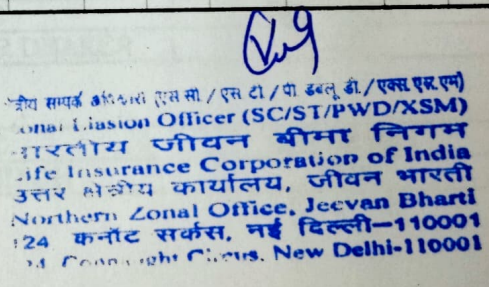 सम्पर्क (एस सी / एस टी / पी डबलू डी. / एक्स एस एम)
Liasion Officer (SC/ST/PWD/XSM)
भारतीय जीवन बीमा निगम
Life Insurance Corporation of India
उत्तर क्षेत्रीय कार्यालय, जीवन भारती
Northern Zonal Office, Jeevan Bharti
124, कनॉट सर्कस, नई दिल्ली-110001
New Delhi-110001